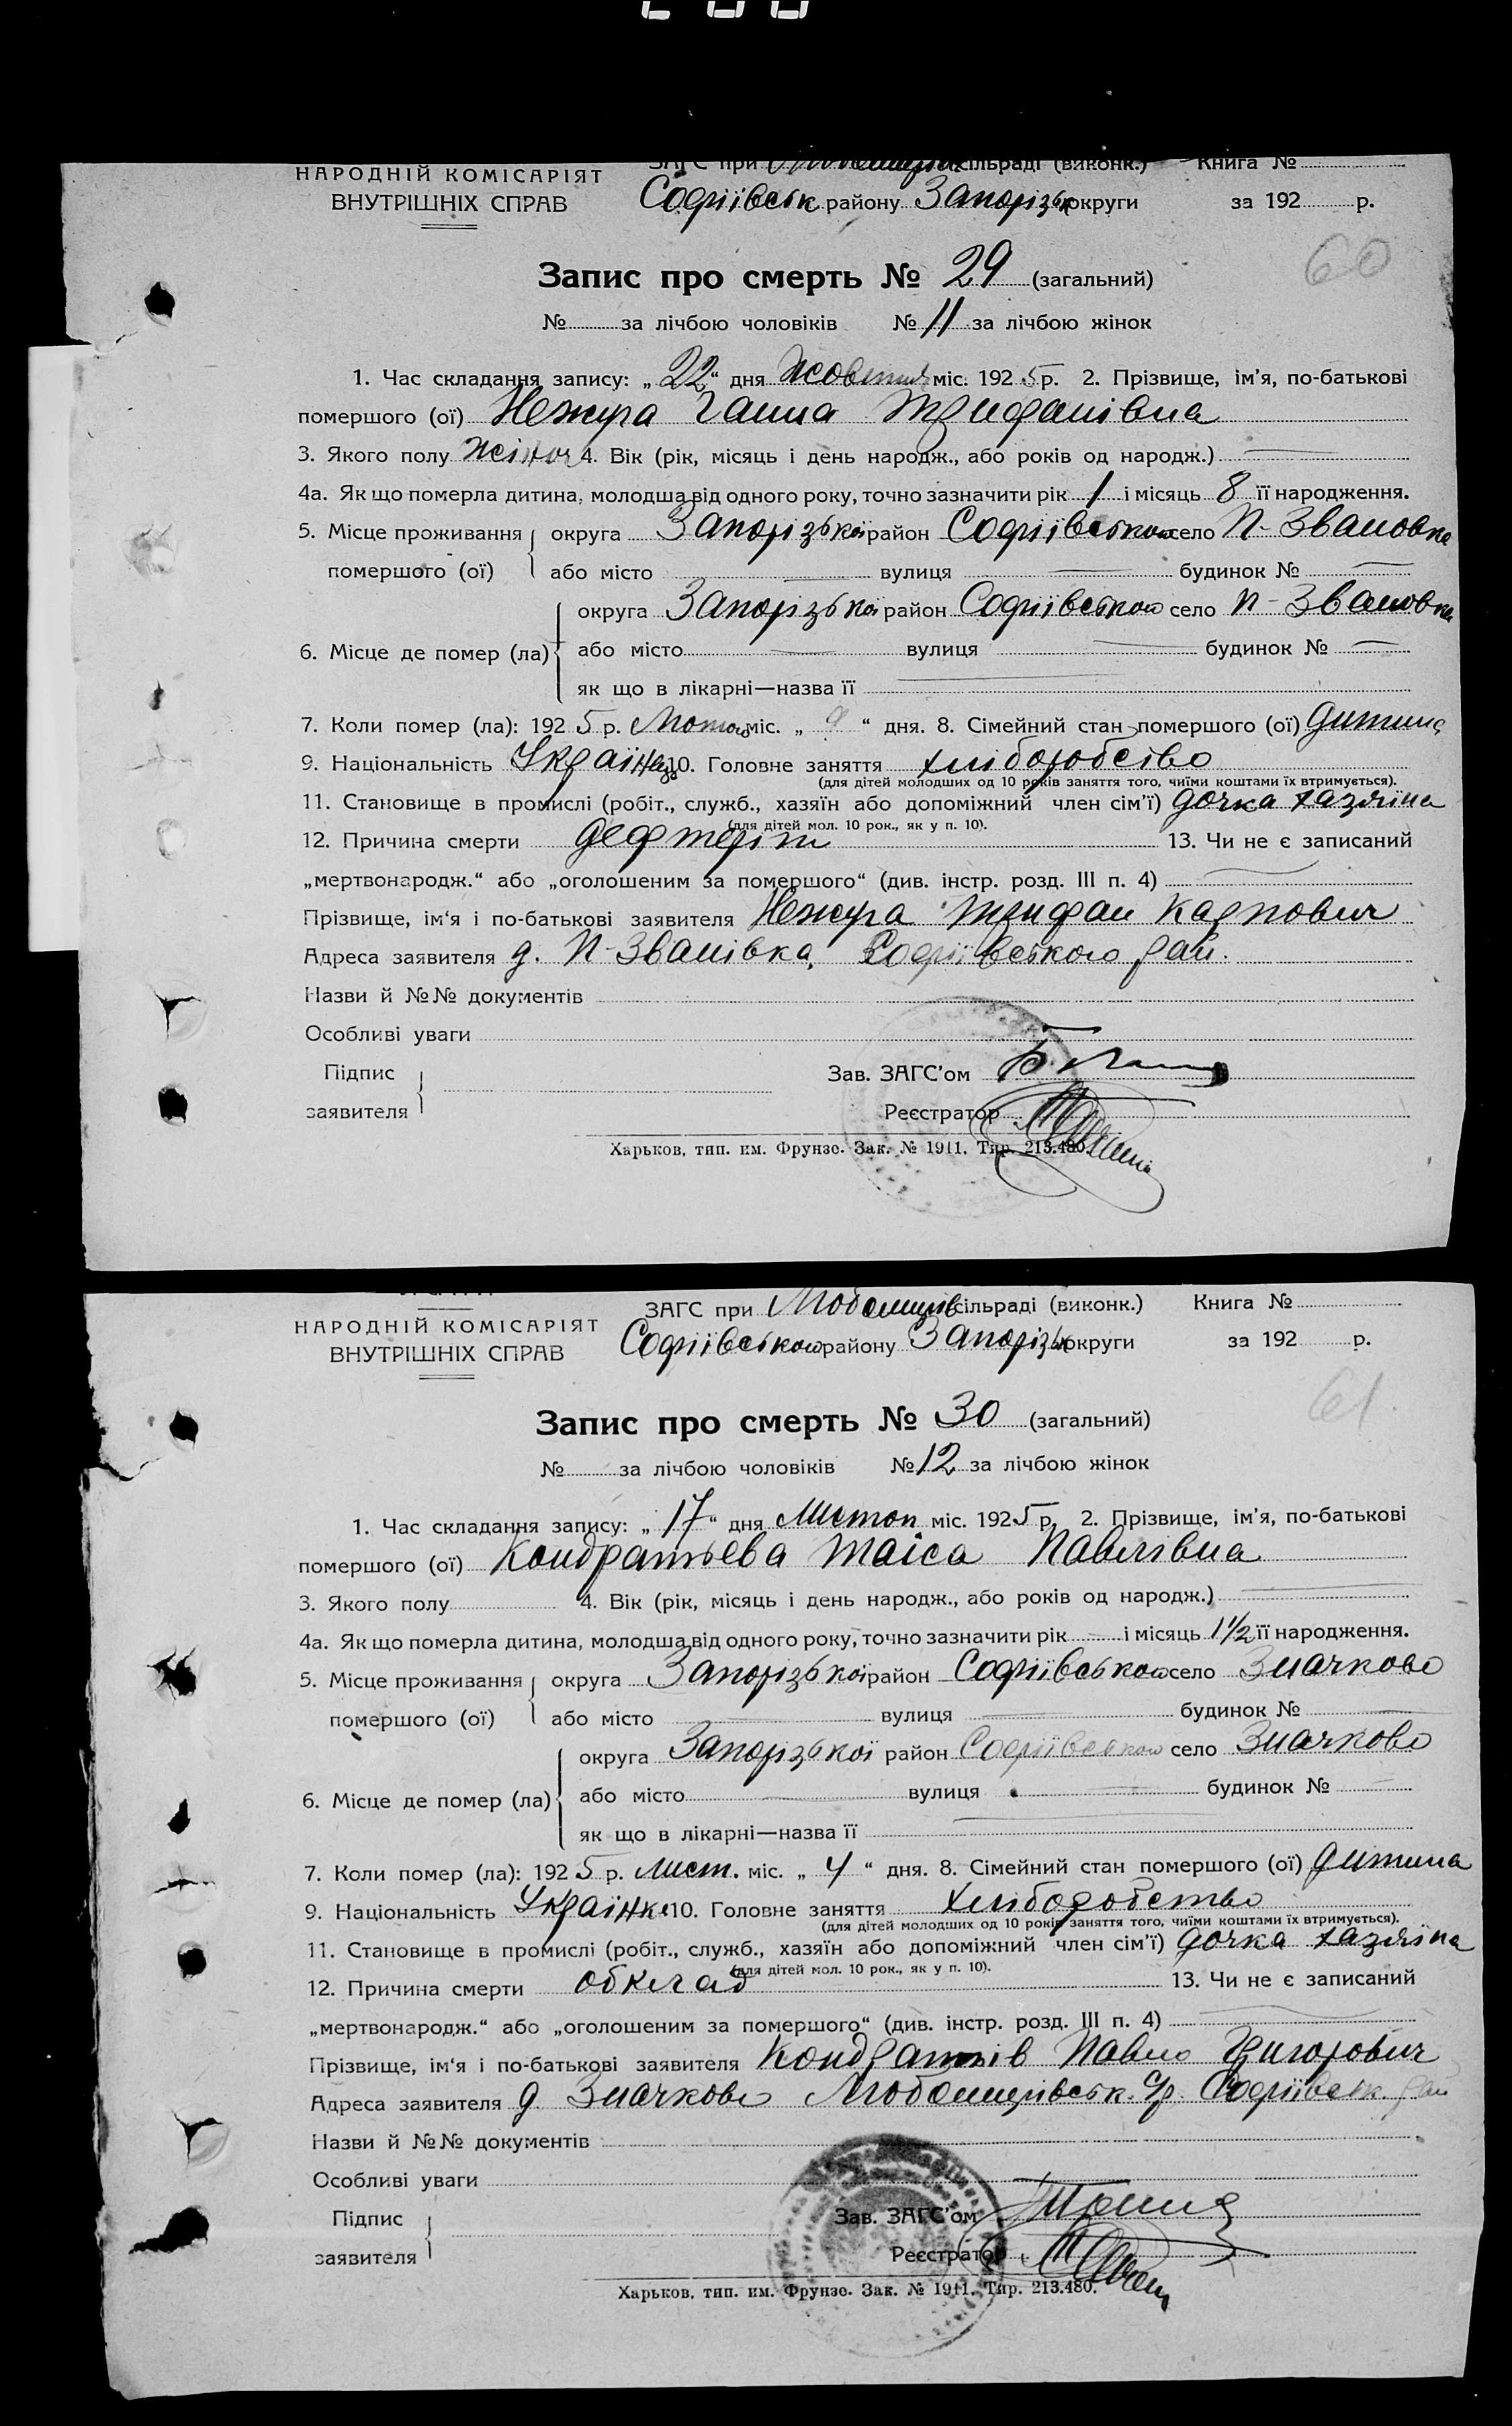 НАРОДНІЙ КОМІСАРІЯТ
ВНУТРІШНІХ СПРАВ
ЗАГС при сільраді (виконк.)
Софіївськ району Запорізьк округи
Книга №
за 192 р.
60
Запис про смерть № 29 (загальний)
№ за лічбою чоловіків № 11 за лічбою жінок
1. Час складання запису: „ 22 “ дня Жовтня міс. 192 5 р. 2. Прізвище, ім’я, по-батькові
помершого (ої) Нежура Ганна Трифанівна
3. Якого полу жіноч 4. Вік (рік, місяць і день народж., або років од народж.) —
4а. Як що померла дитина, молодша від одного року, точно зазначити рік 1 і місяць 8 її народження.
5. Місце проживання округа Запорізької район Софіївського село П-Звановка
помершого (ої) або місто — вулиця — будинок № —
округа Запорізької район Софіївського село П-Звановка
6. Місце де помер (ла) або місто — вулиця — будинок № —
як що в лікарні—назва її —
7. Коли помер (ла): 192 5 р. Лютого міс. „ 9 “ дня. 8. Сімейний стан помершого (ої) дитина
9. Національність Українка 10. Головне заняття хліборобство
(для дітей молодших од 10 років заняття того, чиїми коштами їх втримується).
11. Становище в промислі (робіт., служб., хазяїн або допоміжний член сім’ї) дочка хазяїна
(для дітей мол. 10 рок., як у п. 10).
12. Причина смерти дефтеріт 13. Чи не є записаний
„мертвонародж.“ або „оголошеним за помершого“ (див. інстр. розд. III п. 4) —
Прізвище, ім‘я і по-батькові заявителя Нежура Трифан Карпович
Адреса заявителя д. П-Званівка, Софіївського рай.
Назви й №№ документів
Особливі уваги
Підпис
заявителя
Зав. ЗАГС’ом
Реєстратор
Харьков, тип. им. Фрунзе. Зак. № 1911. Тир. 213.480.
НАРОДНІЙ КОМІСАРІЯТ
ВНУТРІШНІХ СПРАВ
ЗАГС при Любомирів сільраді (виконк.)
Софіївського району Запорізьк округи
Книга №
за 192 р.
61
Запис про смерть № 30 (загальний)
№ за лічбою чоловіків № 12 за лічбою жінок
1. Час складання запису: „ 17 “ дня Листоп міс. 192 5 р. 2. Прізвище, ім’я, по-батькові
помершого (ої) Кондратьева Таіса Павлівна
3. Якого полу 4. Вік (рік, місяць і день народж., або років од народж.) —
4а. Як що померла дитина, молодша від одного року, точно зазначити рік і місяць 1½ її народження.
5. Місце проживання округа Запорізької район Софіївського село Значково
помершого (ої) або місто — вулиця — будинок № —
округа Запорізької район Софіївського село Значково
6. Місце де помер (ла) або місто — вулиця — будинок № —
як що в лікарні—назва її —
7. Коли помер (ла): 192 5 р. лист. міс. „ 4 “ дня. 8. Сімейний стан помершого (ої) дитина
9. Національність Українка 10. Головне заняття хліборобство
(для дітей молодших од 10 років заняття того, чиїми коштами їх втримується).
11. Становище в промислі (робіт., служб., хазяїн або допоміжний член сім’ї) дочка хазяїна
(для дітей мол. 10 рок., як у п. 10).
12. Причина смерти обклад 13. Чи не є записаний
„мертвонародж.“ або „оголошеним за помершого“ (див. інстр. розд. III п. 4) —
Прізвище, ім‘я і по-батькові заявителя Кондратьів Павло Григорович
Адреса заявителя д Значково Любомирівськ. с/р. Софіївськ. рай
Назви й №№ документів
Особливі уваги
Підпис
заявителя
Зав. ЗАГС’ом
Реєстратор
Харьков, тип. им. Фрунзе. Зак. № 1911. Тир. 213.480.